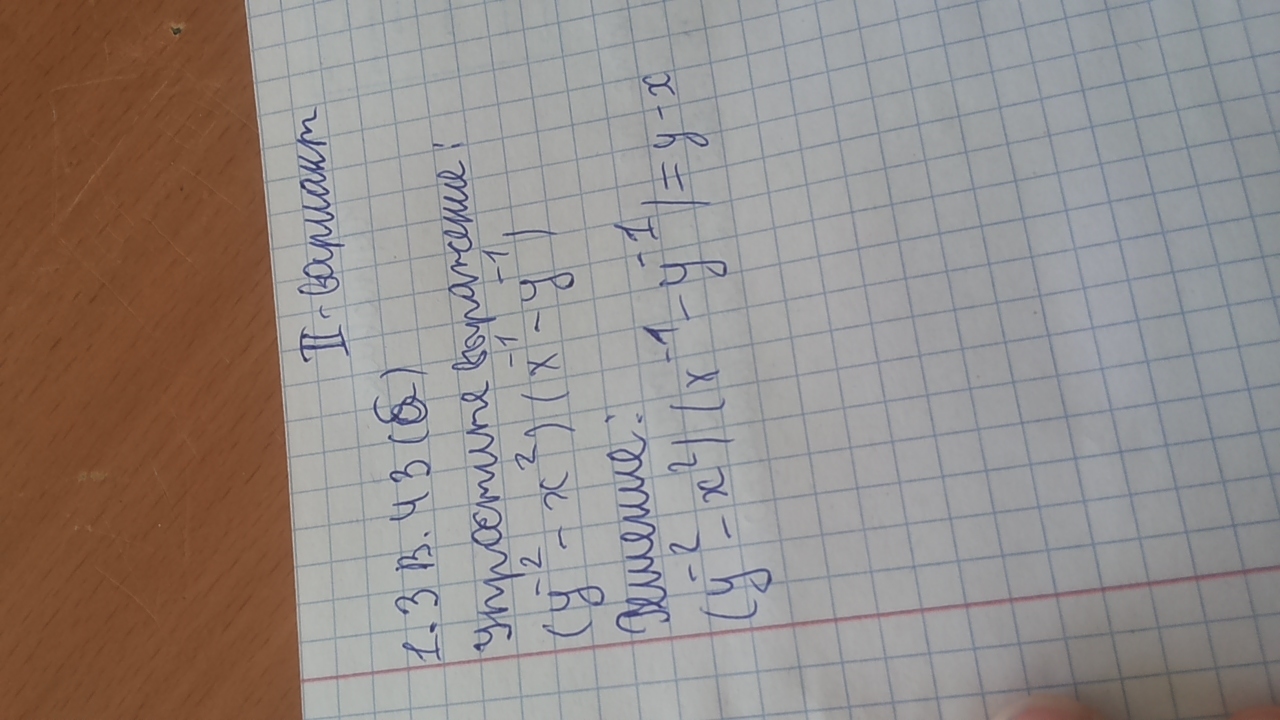 II - вариант
1. 3 В. 43 (б)
Упростите выражение:
(y⁻² - x²) (x⁻¹ - y⁻¹)
Решение:
(y⁻² - x²) (x⁻¹ - y⁻¹) = y - x